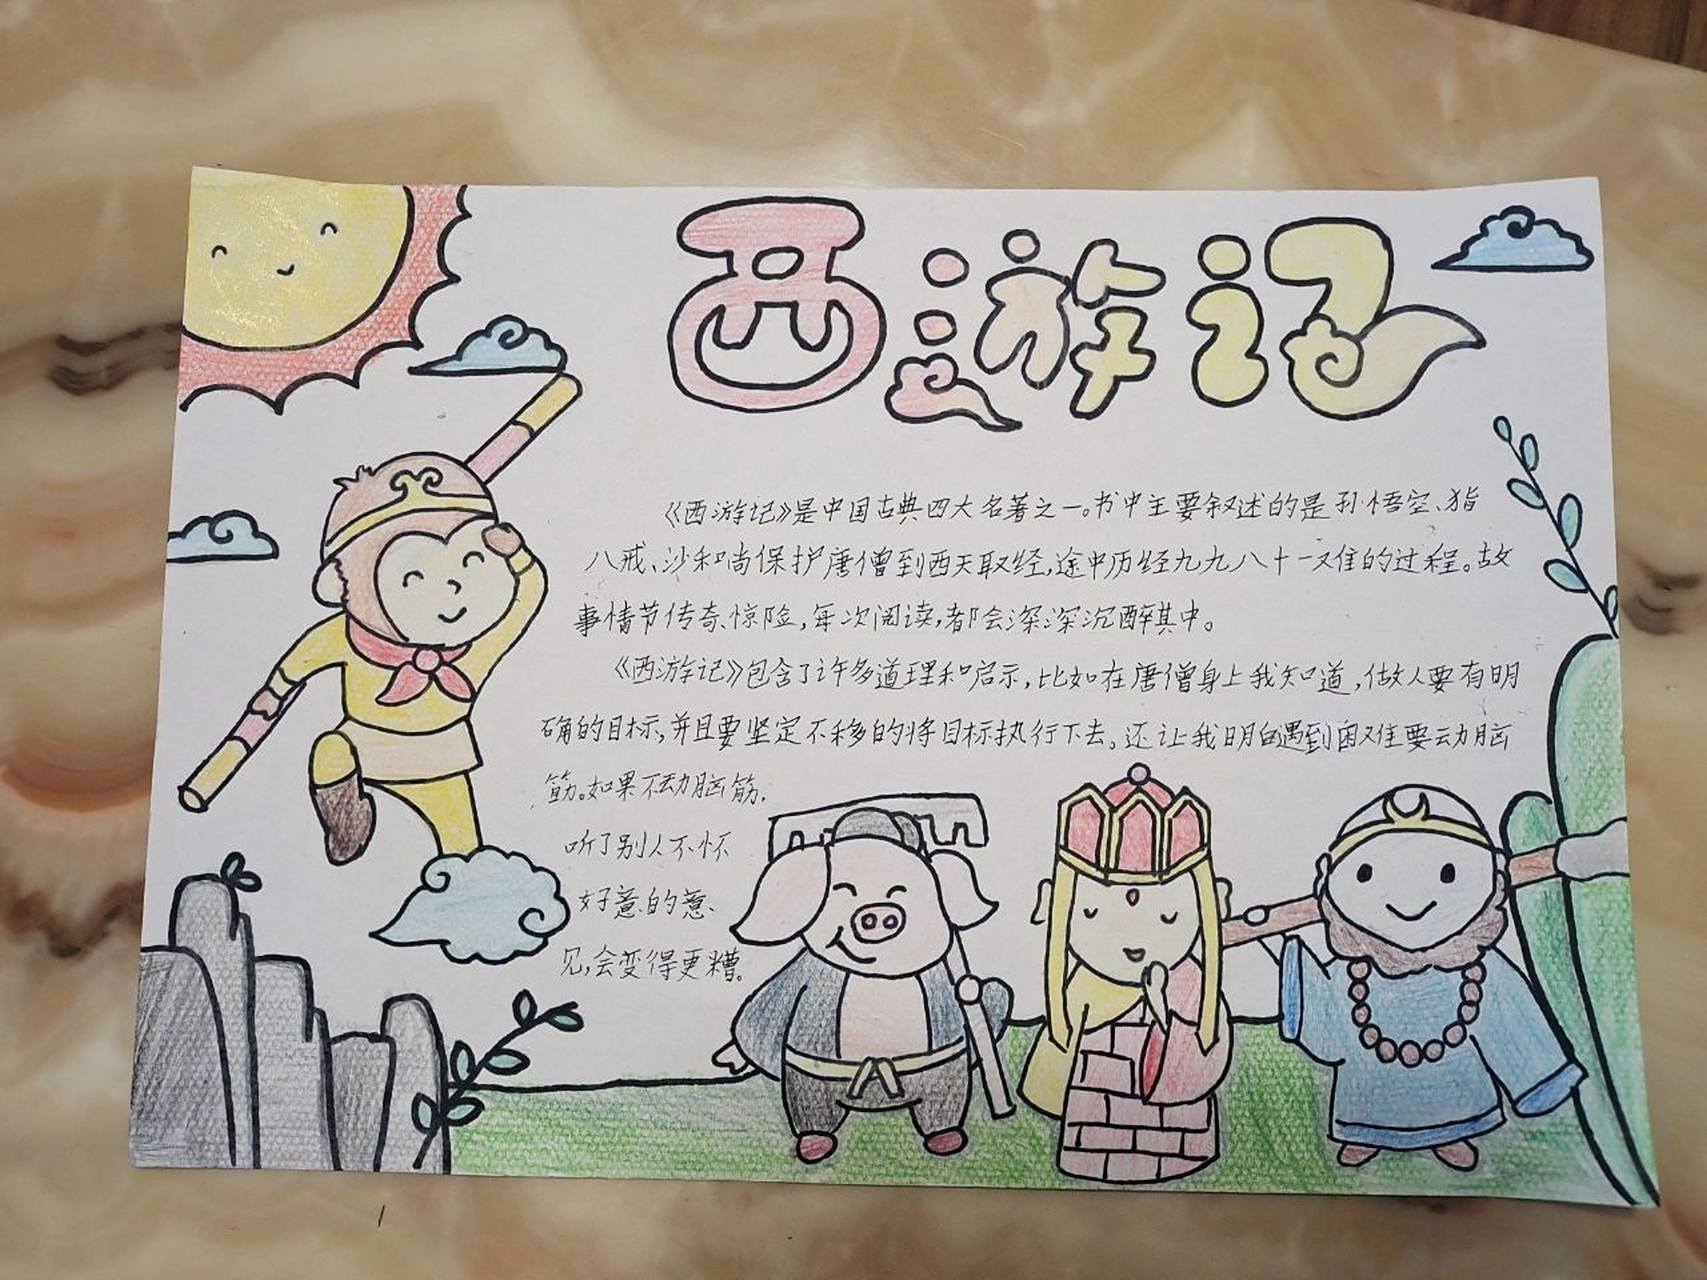 西游记
《西游记》是中国古典四大名著之一。书中主要叙述的是孙悟空、猪
八戒、沙和尚保护唐僧到西天取经,途中历经九九八十一难的过程。故
事情节传奇、惊险,每次阅读,都会深深沉醉其中。
《西游记》包含了许多道理和启示,比如在唐僧身上我知道,做人要有明
确的目标,并且要坚定不移的将目标执行下去。还让我明白遇到困难要动脑
筋。如果不动脑筋,
听了别人不怀
好意的意
见,会变得更糟。